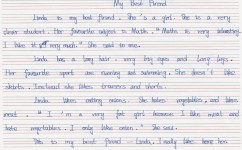 My Best Friend
Linda is my best friend. She is a girl. She is a very
clever student. Her favourite subject is Math. "Math is very interesting.
I like it very much." She said to me.
Linda has a long hair, very big eyes and long legs.
Her favourite sports are running and swimming. She doesn't like
skirts. Instead she likes trousers and shorts.
Linda likes eating sweets. She hates vegetables, and likes
meat. "I'm a very fat girl because I like meat and
hate vegetables. I only like onion." She says.
This is my best friend - Linda. I really like her